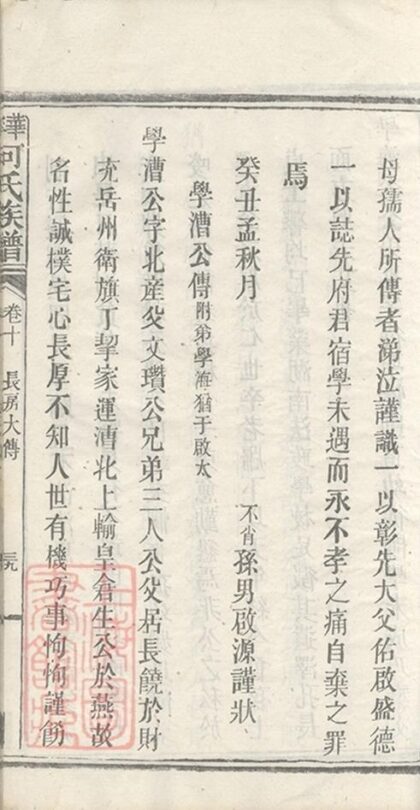 母孺人所傳者涕泣謹識一以彰先大父佑啟盛德
一以誌先府君宿學未遇而永不孝之痛自棄之罪
焉
癸丑孟秋月 不肖孫男啟源謹狀
學漕公傳附弟學海猶子啟太
學漕公字北産父文瓚公兄弟三人公父居長饒於財
充岳州衛旗丁挈家運漕北上輸皇倉生公於燕故
名性誠樸宅心長厚不知人世有機巧事恂恂謹飭
何氏族譜 卷十 長房大傳